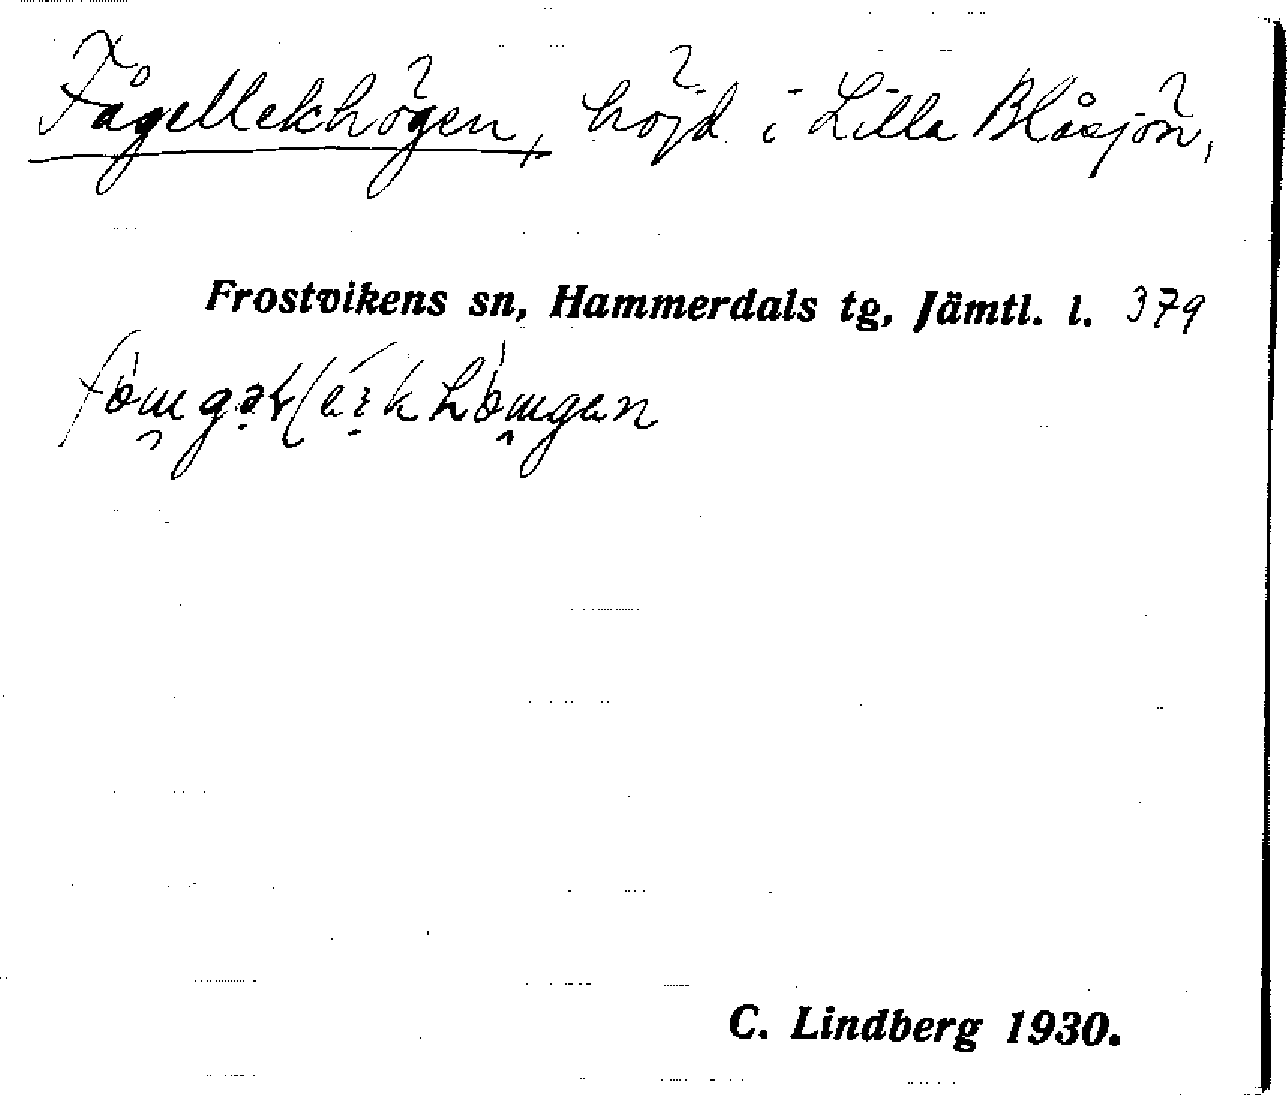 Fågellekhögen, höjd i Lilla Blåsjön,
Frostvikens sn, Hammerdals tg, Jämtl. l. 379
C. Lindberg 1930.